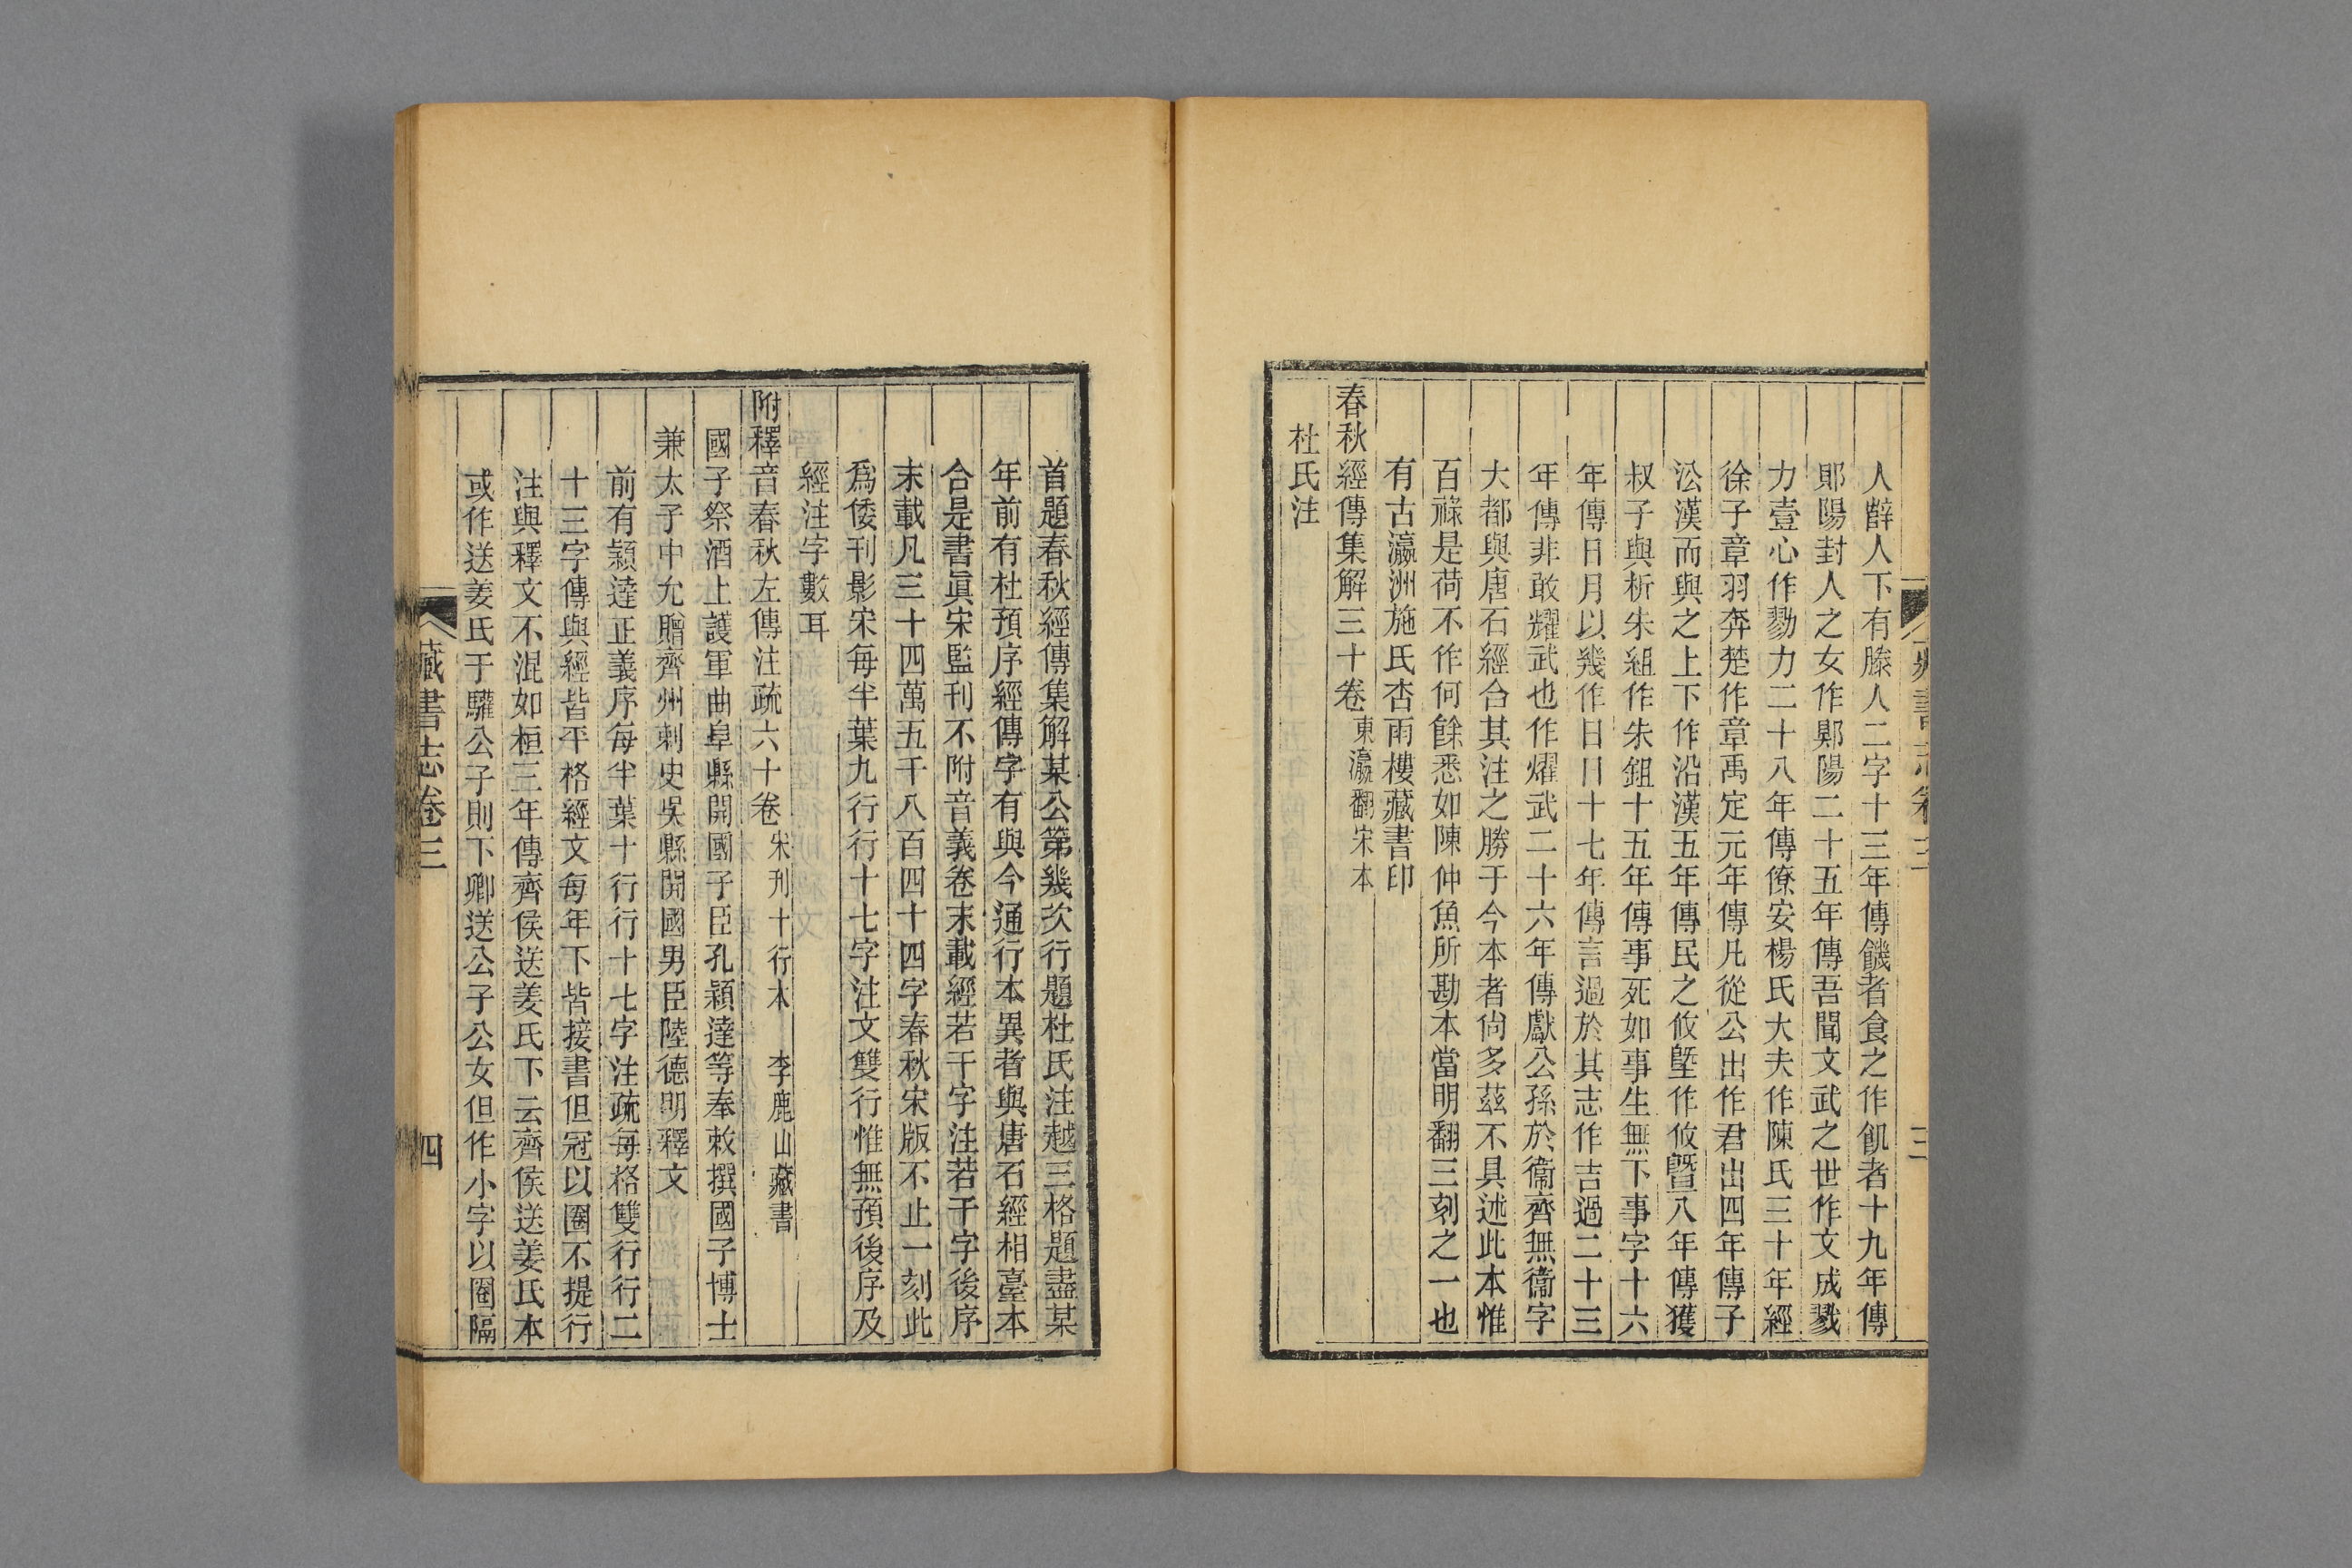 人薛人下有滕人二字十三年傳饑者食之作飢者十九年傳
郹陽封人之女作鄓陽二十五年傳吾聞文武之世作文成戮
力壹心作勠力二十八年傳僚安楊氏大夫作陳氏三十年經
徐子章羽奔楚作章禹定元年傳凡從公出作君出四年傳子
㳂漢而與之上下作沿漢五年傳民之攸塈作攸曁八年傳獲
叔子與析朱組作朱鉏十五年傳事死如事生無下事字十六
年傳日月以幾作日日十七年傳言過於其志作吉過二十三
年傳非敢耀武也作燿武二十六年傳獻公孫於衞齊無衞字
大都與唐石經合其注之勝于今本者尙多茲不具述此本惟
百祿是荷不作何餘悉如陳仲魚所勘本當明翻三刻之一也
有古瀛洲施氏杏雨樓藏書印
春秋經傳集解三十卷 東瀛翻宋本
杜氏注
首題春秋經傳集解某公第幾次行題杜氏注越三格題盡某
年前有杜預序經傳字有與今通行本異者與唐石經相臺本
合是書眞宋監刊不附音義卷末載經若干字注若干字後序
末載凡三十四萬五千八百四十四字春秋宋版不止一刻此
爲倭刊影宋每半葉九行行十七字注文雙行惟無預後序及
經注字數耳
附釋音春秋左傳注疏六十卷 宋刊十行本 李鹿山藏書
國子祭酒上護軍曲阜縣開國子臣孔穎達等奉敕撰國子博士
兼太子中允贈齊州刺史吳縣開國男臣陸德明釋文
前有穎達正義序每半葉十行行十七字注疏每格雙行行二
十三字傳與經皆平格經文每年下皆接書但冠以圈不提行
注與釋文不混如桓三年傳齊侯送姜氏下云齊侯送姜氏本
或作送姜氏于驩公子則下卿送公子公女但作小字以圈隔
藏書志卷三
四